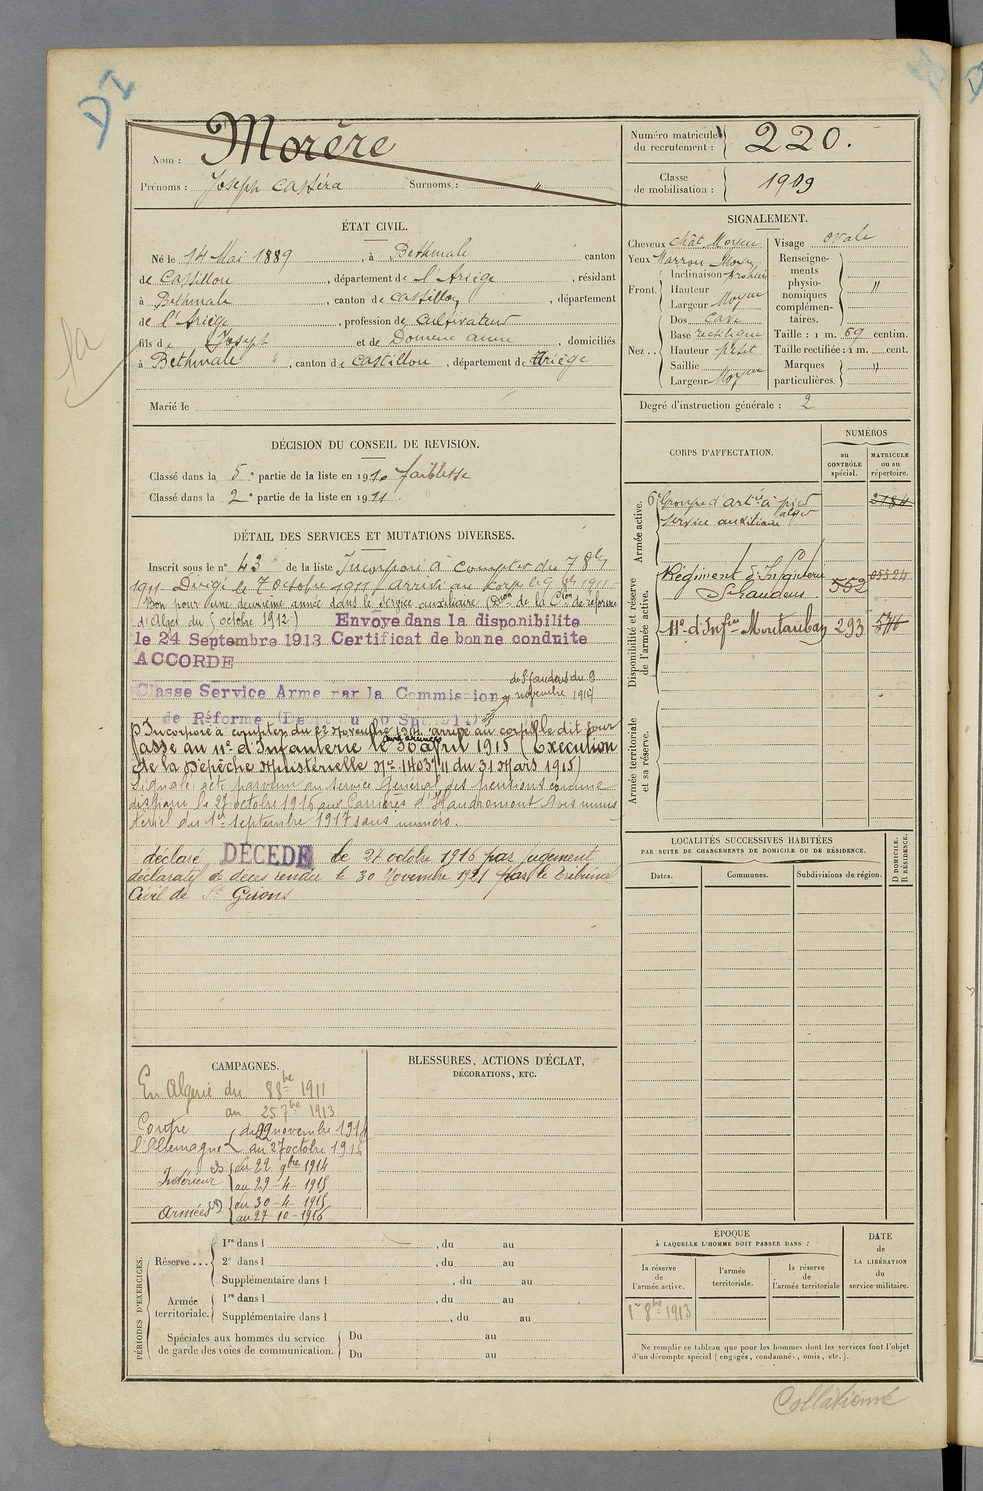 DI
Nom : Morère
Prénoms : Joseph Castéra Surnoms : "
Numéro matricule du recrutement : 220.
Classe de mobilisation : 1909
ÉTAT CIVIL.
Né le 14 Mai 1889, à Bethmale canton
de Castillon, département de l'Ariège, résidant
à Bethmale, canton de Castillon, département
de l'Ariège, profession de Cultivateur
fils de Joseph et de Domenc anne, domiciliés
à Bethmale, canton de Castillon, département de Ariège
Marié le
SIGNALEMENT.
Cheveux chât Moyen
Yeux Marron Moyen
Front. Inclinaison
Hauteur
Largeur Moyen
Nez.. Dos Cave
Base rectiligne
Hauteur petit
Saillie
Largeur Moyen
Visage ovale
Renseignements physionomiques complémentaires. "
Taille : 1 m. 69 centim.
Taille rectifiée : 1 m. cent.
Marques particulières. "
Degré d'instruction générale : 2
DÉCISION DU CONSEIL DE REVISION.
Classé dans la 5e partie de la liste en 1910 faiblesse
Classé dans la 2e partie de la liste en 1911.
CORPS D'AFFECTATION.
NUMÉROS
au CONTRÔLE spécial.
MATRICULE ou au répertoire.
Armée active.
6e Groupe d'artie à pied alger
service auxiliaire
2184
Disponibilité et réserve de l'armée active.
Régiment d'Infanterie
St Gaudens 552
11e d'Infrie Montauban 293
Armée territoriale et sa réserve.
DÉTAIL DES SERVICES ET MUTATIONS DIVERSES.
Inscrit sous le n° 43 de la liste Incorporé à compter du 7 8bre
1911 Dirigé le 7 octobre 1911 Arrivé au corps le 9 8bre 1911
Bon pour une deuxième année dans le service auxiliaire (Don de la Con de réforme
d'Alger du octobre 1912) Envoyé dans la disponibilite
le 24 Septembre 1913 Certificat de bonne conduite
ACCORDE
Classe Service Arme par la Commission de St Gaudens du 9 novembre 1914
de Réforme (Décret du 6 Sept 1914)
Incorporé à compter du 22 Novembre 1914 arrivé au corps le dit jour
Passé au 11e d'Infanterie aux armées le 30 avril 1915 (Exécution
de la Dépêche Ministérielle No 14037/11 du 31 Mars 1915)
Signalé acte parvenu au Service Général des pensions comme
disparu le 27 octobre 1916 aux Carrières d'Haudromont Avis minis
tériel du 1er septembre 1917 sans numéro.
déclaré DÉCÉDÉ le 27 octobre 1916 par jugement
déclaratif de décès rendu le 30 Novembre 1921 par le tribunal
Civil de St Girons
LOCALITÉS SUCCESSIVES HABITÉES
PAR SUITE DE CHANGEMENTS DE DOMICILE OU DE RÉSIDENCE.
Dates.
Communes.
Subdivisions de région.
D DOMICILE. R RÉSIDENCE.
CAMPAGNES.
En Algérie du 8 8bre 1911
au 25 7bre 1913
Contre l'Allemagne du 22 novembre 1914
au 27 octobre 1916
Intérieur du 22 9bre 1914
au 29-4-1915
Armées du 30-4-1915
au 27-10-1916
BLESSURES, ACTIONS D'ÉCLAT,
DÉCORATIONS, ETC.
PÉRIODES D'EXERCICES.
Réserve... 1re dans l , du au
2e dans l , du au
Supplémentaire dans l , du au
Armée territoriale. 1re dans l , du au
Supplémentaire dans l , du au
Spéciales aux hommes du service de garde des voies de communication. Du au
Du au
ÉPOQUE
À LAQUELLE L'HOMME DOIT PASSER DANS :
la réserve de l'armée active.
l'armée territoriale.
la réserve de l'armée territoriale
DATE de LA LIBÉRATION du service militaire.
1er 8bre 1913
Ne remplir ce tableau que pour les hommes dont les services font l'objet
d'un décompte spécial (engagés, condamnés, omis, etc.).
Collationné